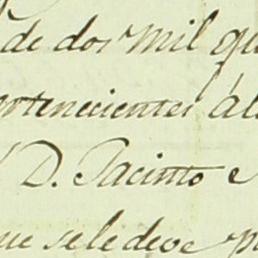 de dos mil qu
ortenecientes á l
D. Jacinto e
ue se le deve p